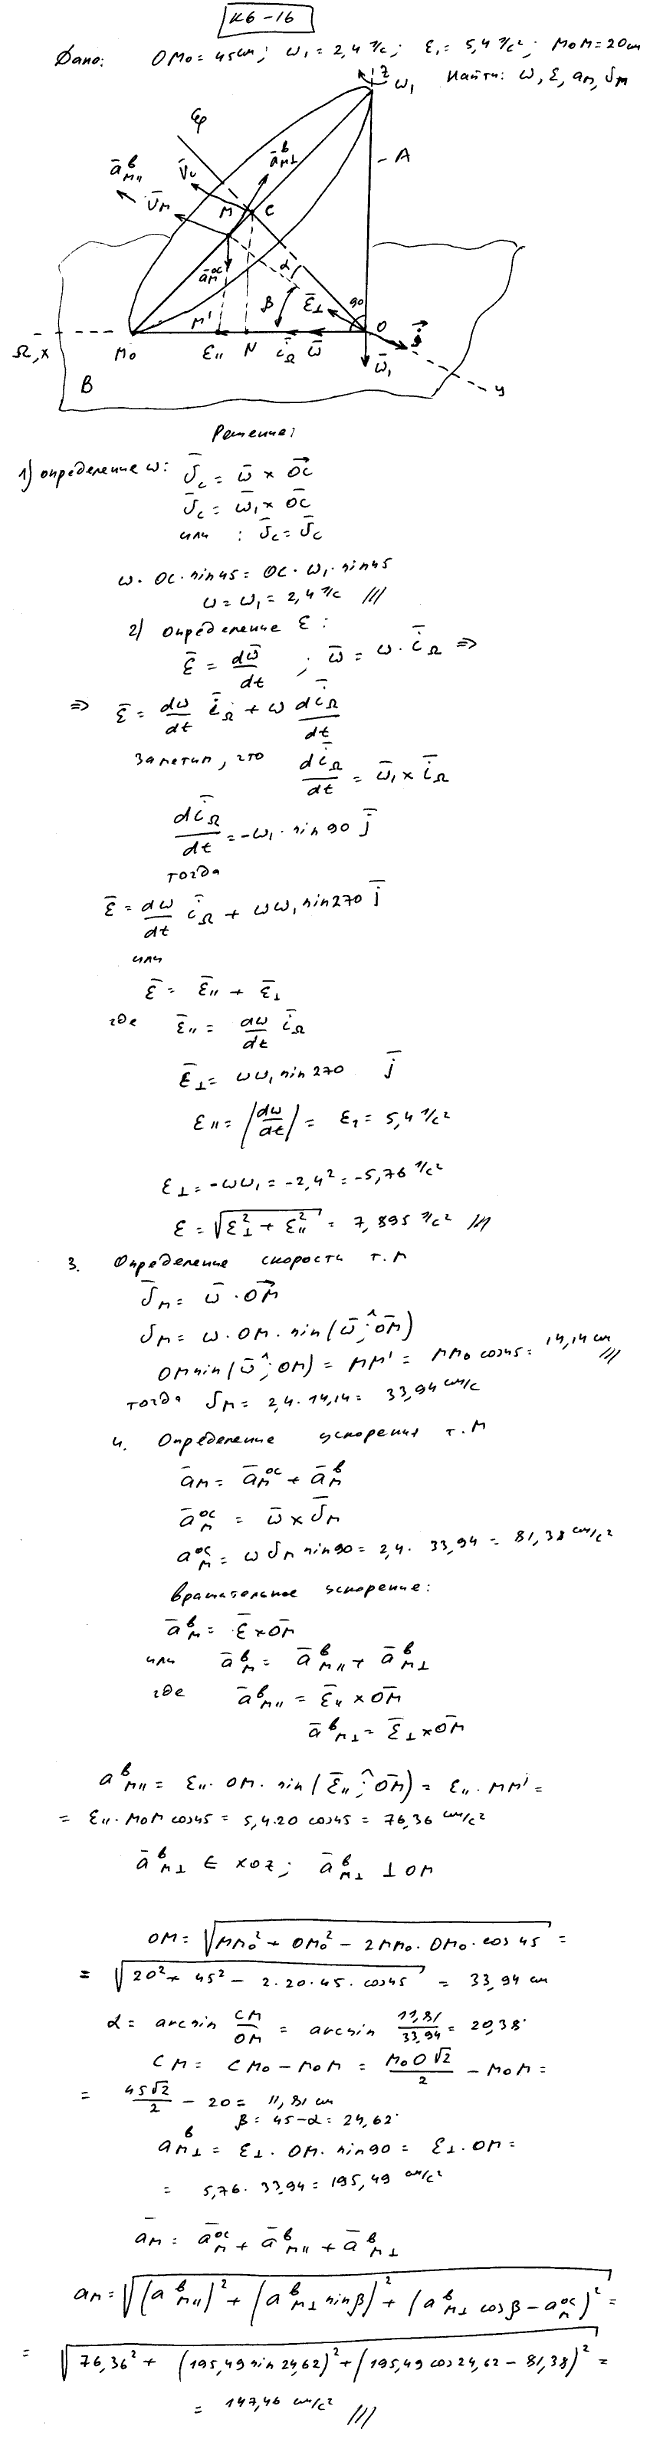 К6-16
Дано: OM₀ = 45 см; ω₁ = 2,4 1/с; ε₁ = 5,4 1/с²; M₀M = 20 см
Найти: ω, ε, aₘ, υₘ
z
ω₁
A
a̅ᵦM⊥
a̅ᵦM∥
V̅c
V̅M
M
C
a̅ᵒᶜM
α
β
ε̅⊥
90
O
M'
Ω, x
M₀
ε∥
N
i̅Ω
ω̅
ω̅₁
B
y
Решение:
1) определение ω: υ̅c = ω̅ × O̅C̅
υ̅c = ω̅₁ × O̅C̅
или : υ̅c = υ̅c
ω · OC · sin45 = OC · ω₁ · sin45
ω = ω₁ = 2,4 1/с ///
2) Определение ε:
ε̅ = dω̅/dt ; ω̅ = ω · i̅Ω ⇒
⇒ ε̅ = dω/dt i̅Ω + ω di̅Ω/dt
Заметим, что di̅Ω/dt = ω̅₁ × i̅Ω
di̅Ω/dt = -ω₁ · sin90 j̅
тогда
ε̅ = dω/dt i̅Ω + ωω₁ sin270 j̅
или
ε̅ = ε̅∥ + ε̅⊥
где ε̅∥ = dω/dt i̅Ω
ε̅⊥ = ωω₁ sin270 j̅
ε∥ = |dω/dt| = ε₁ = 5,4 1/с²
ε⊥ = -ωω₁ = -2,4² = -5,76 1/с²
ε = √(ε⊥² + ε∥²) = 7,895 1/с² ///
3. Определение скорости т. М
υ̅M = ω̅ · O̅M̅
υM = ω · OM · sin(ω̅ ;^ O̅M̅)
OM sin(ω̅ ;^ OM) = MM' = MM₀ cos45 = 14,14 см ///
тогда υM = 2,4 · 14,14 = 33,94 см/с
4. Определение ускорения т. М
a̅M = a̅Mᵒᶜ + a̅Mᵇ
a̅Mᵒᶜ = ω̅ × υ̅M
aMᵒᶜ = ω υM sin90 = 2,4 · 33,94 = 81,38 см/с²
вращательное ускорение:
a̅Mᵇ = ε̅ × O̅M̅
или a̅Mᵇ = a̅ᵇM∥ + a̅ᵇM⊥
где a̅ᵇM∥ = ε̅∥ × O̅M̅
a̅ᵇM⊥ = ε̅⊥ × O̅M̅
aᵇM∥ = ε∥ · OM · sin(ε̅∥ ;^ O̅M̅) = ε∥ · MM' =
= ε∥ · M₀M cos45 = 5,4 · 20 cos45 = 76,36 см/с²
a̅ᵇM⊥ ∈ xOz; a̅ᵇM⊥ ⊥ OM
OM = √(MM₀² + OM₀² - 2MM₀ · OM₀ · cos45) =
= √(20² + 45² - 2 · 20 · 45 · cos45) = 33,94 см
α = arcsin CM/OM = arcsin 11,81/33,94 = 20,38°
CM = CM₀ - M₀M = M₀O√2/2 - M₀M =
= 45√2/2 - 20 = 11,81 см
β = 45 - α = 24,62°
aᵇM⊥ = ε⊥ · OM · sin90 = ε⊥ · OM =
= 5,76 · 33,94 = 195,49 см/с²
a̅M = a̅Mᵒᶜ + a̅ᵇM∥ + a̅ᵇM⊥
aM = √((aᵇM∥)² + (aᵇM⊥ sinβ)² + (aᵇM⊥ cosβ - aMᵒᶜ)²) =
= √(76,36² + (195,49 sin24,62)² + (195,49 cos24,62 - 81,38)²) =
= 147,46 см/с² ///